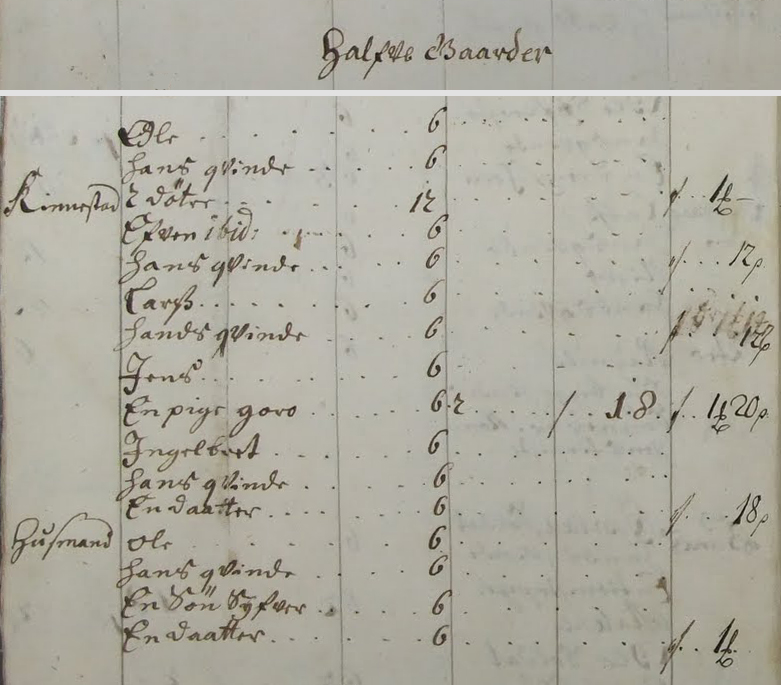 Halfve Gaarder
Ole 6
hans qvinde 6
Kinnestad 2 døtre 12 1
Efven ibid: 6
hans qvinde 6 12
Larß 6
hands qvinde 6 12
Jens 6
En pige goro 6 2 1 8 1 20
Ingelbret 6
hans qvinde 6
En daatter 6 18
Husmand ole 6
hans qvinde 6
En Søn Syfver 6
En daatter 6 1